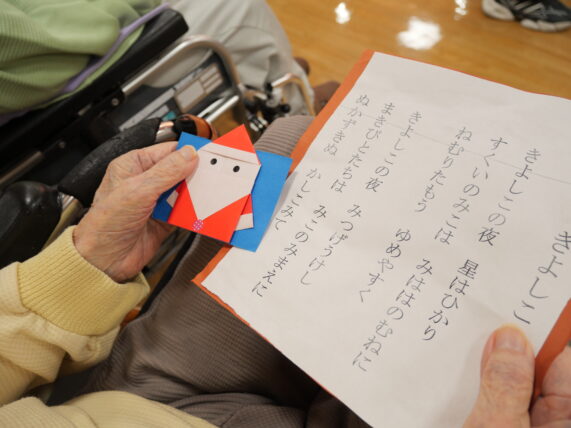 きよしこ
きよしこの夜　星はひかり
すくいのみこは　みははのむねに
ねむりたもう　ゆめやすく
きよしこの夜　みつげうけし
まきびとたちは　みこのみまえに
ぬかずきぬ　かしこみて